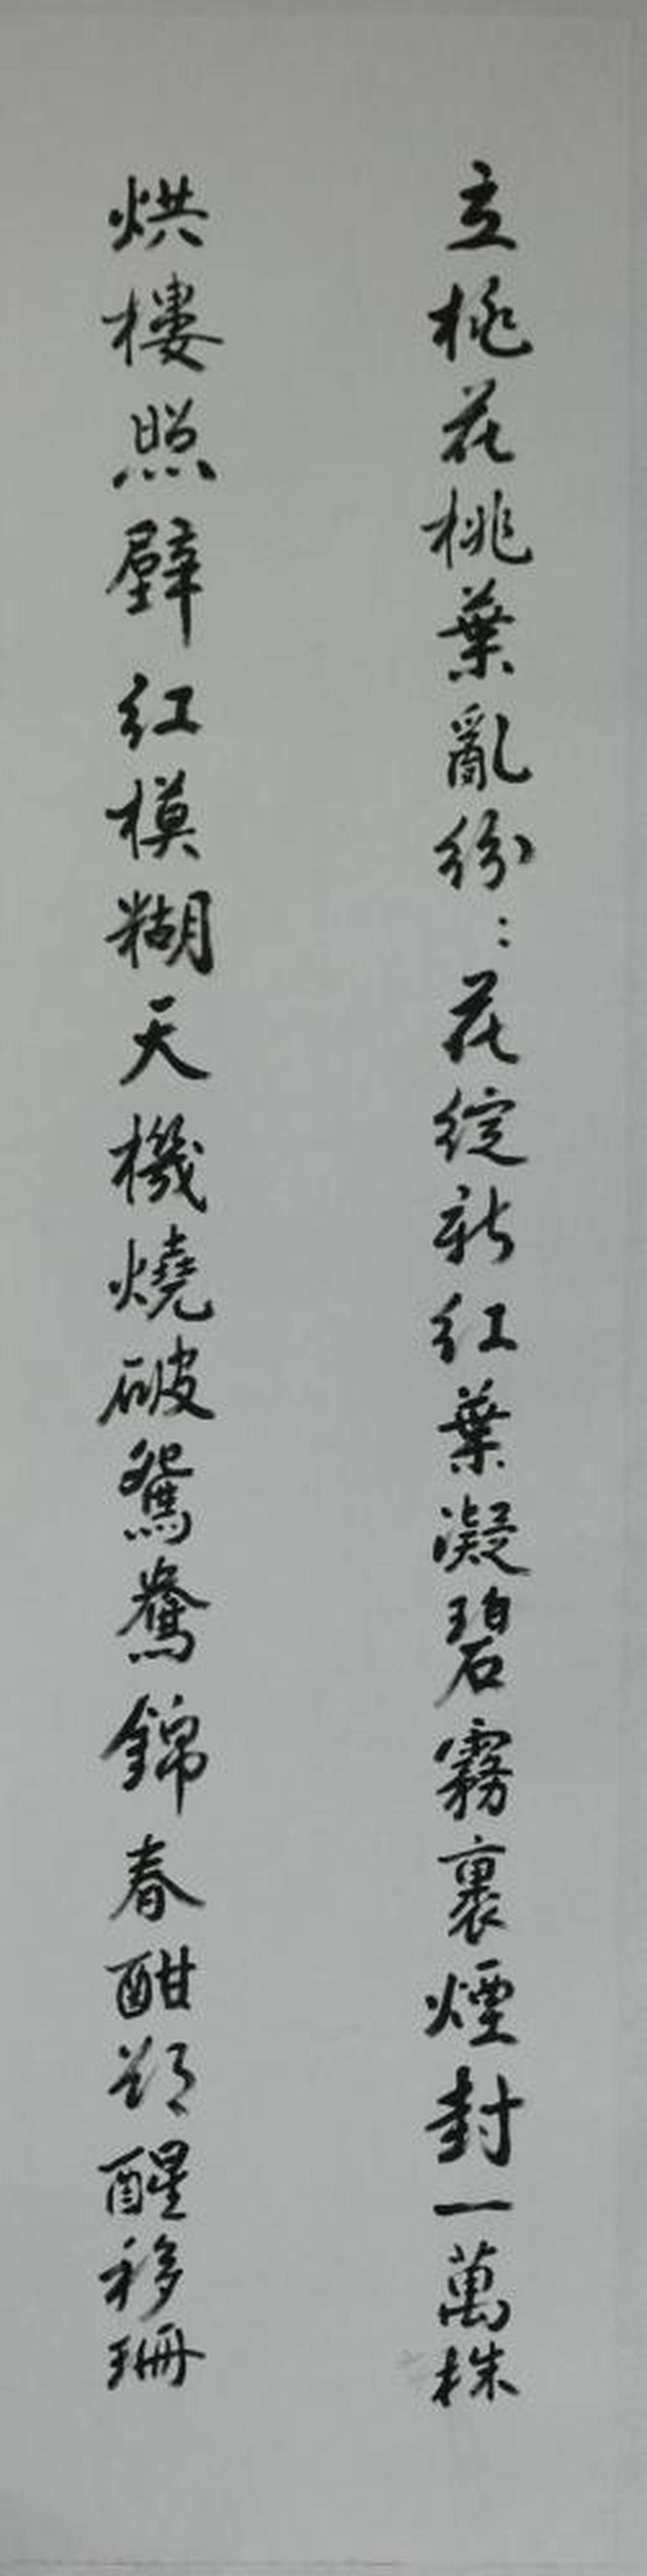 立桃花桃葉亂紛：花綻新紅葉凝碧霧裹煙封一萬株
烘樓照壁紅模糊天機燒破鴛鴦錦春酣欲醒移珊